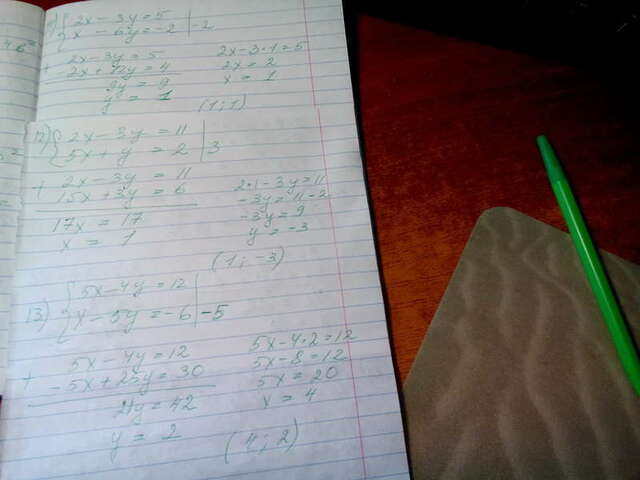 { 2x - 3y = 5
x - 6y = -2 | -2
+ 2x - 3y = 5
-2x + 12y = 4
9y = 9
y = 1
2x - 3·1 = 5
2x = 2
x = 1
(1; 1)
12) { 2x - 3y = 11
5x + y = 2 | 3
+ 2x - 3y = 11
15x + 3y = 6
17x = 17
x = 1
2·1 - 3y = 11
-3y = 11 - 2
-3y = 9
y = -3
(1; -3)
13) { 5x - 4y = 12
x - 5y = -6 | -5
+ 5x - 4y = 12
-5x + 25y = 30
21y = 42
y = 2
5x - 4·2 = 12
5x - 8 = 12
5x = 20
x = 4
(4; 2)